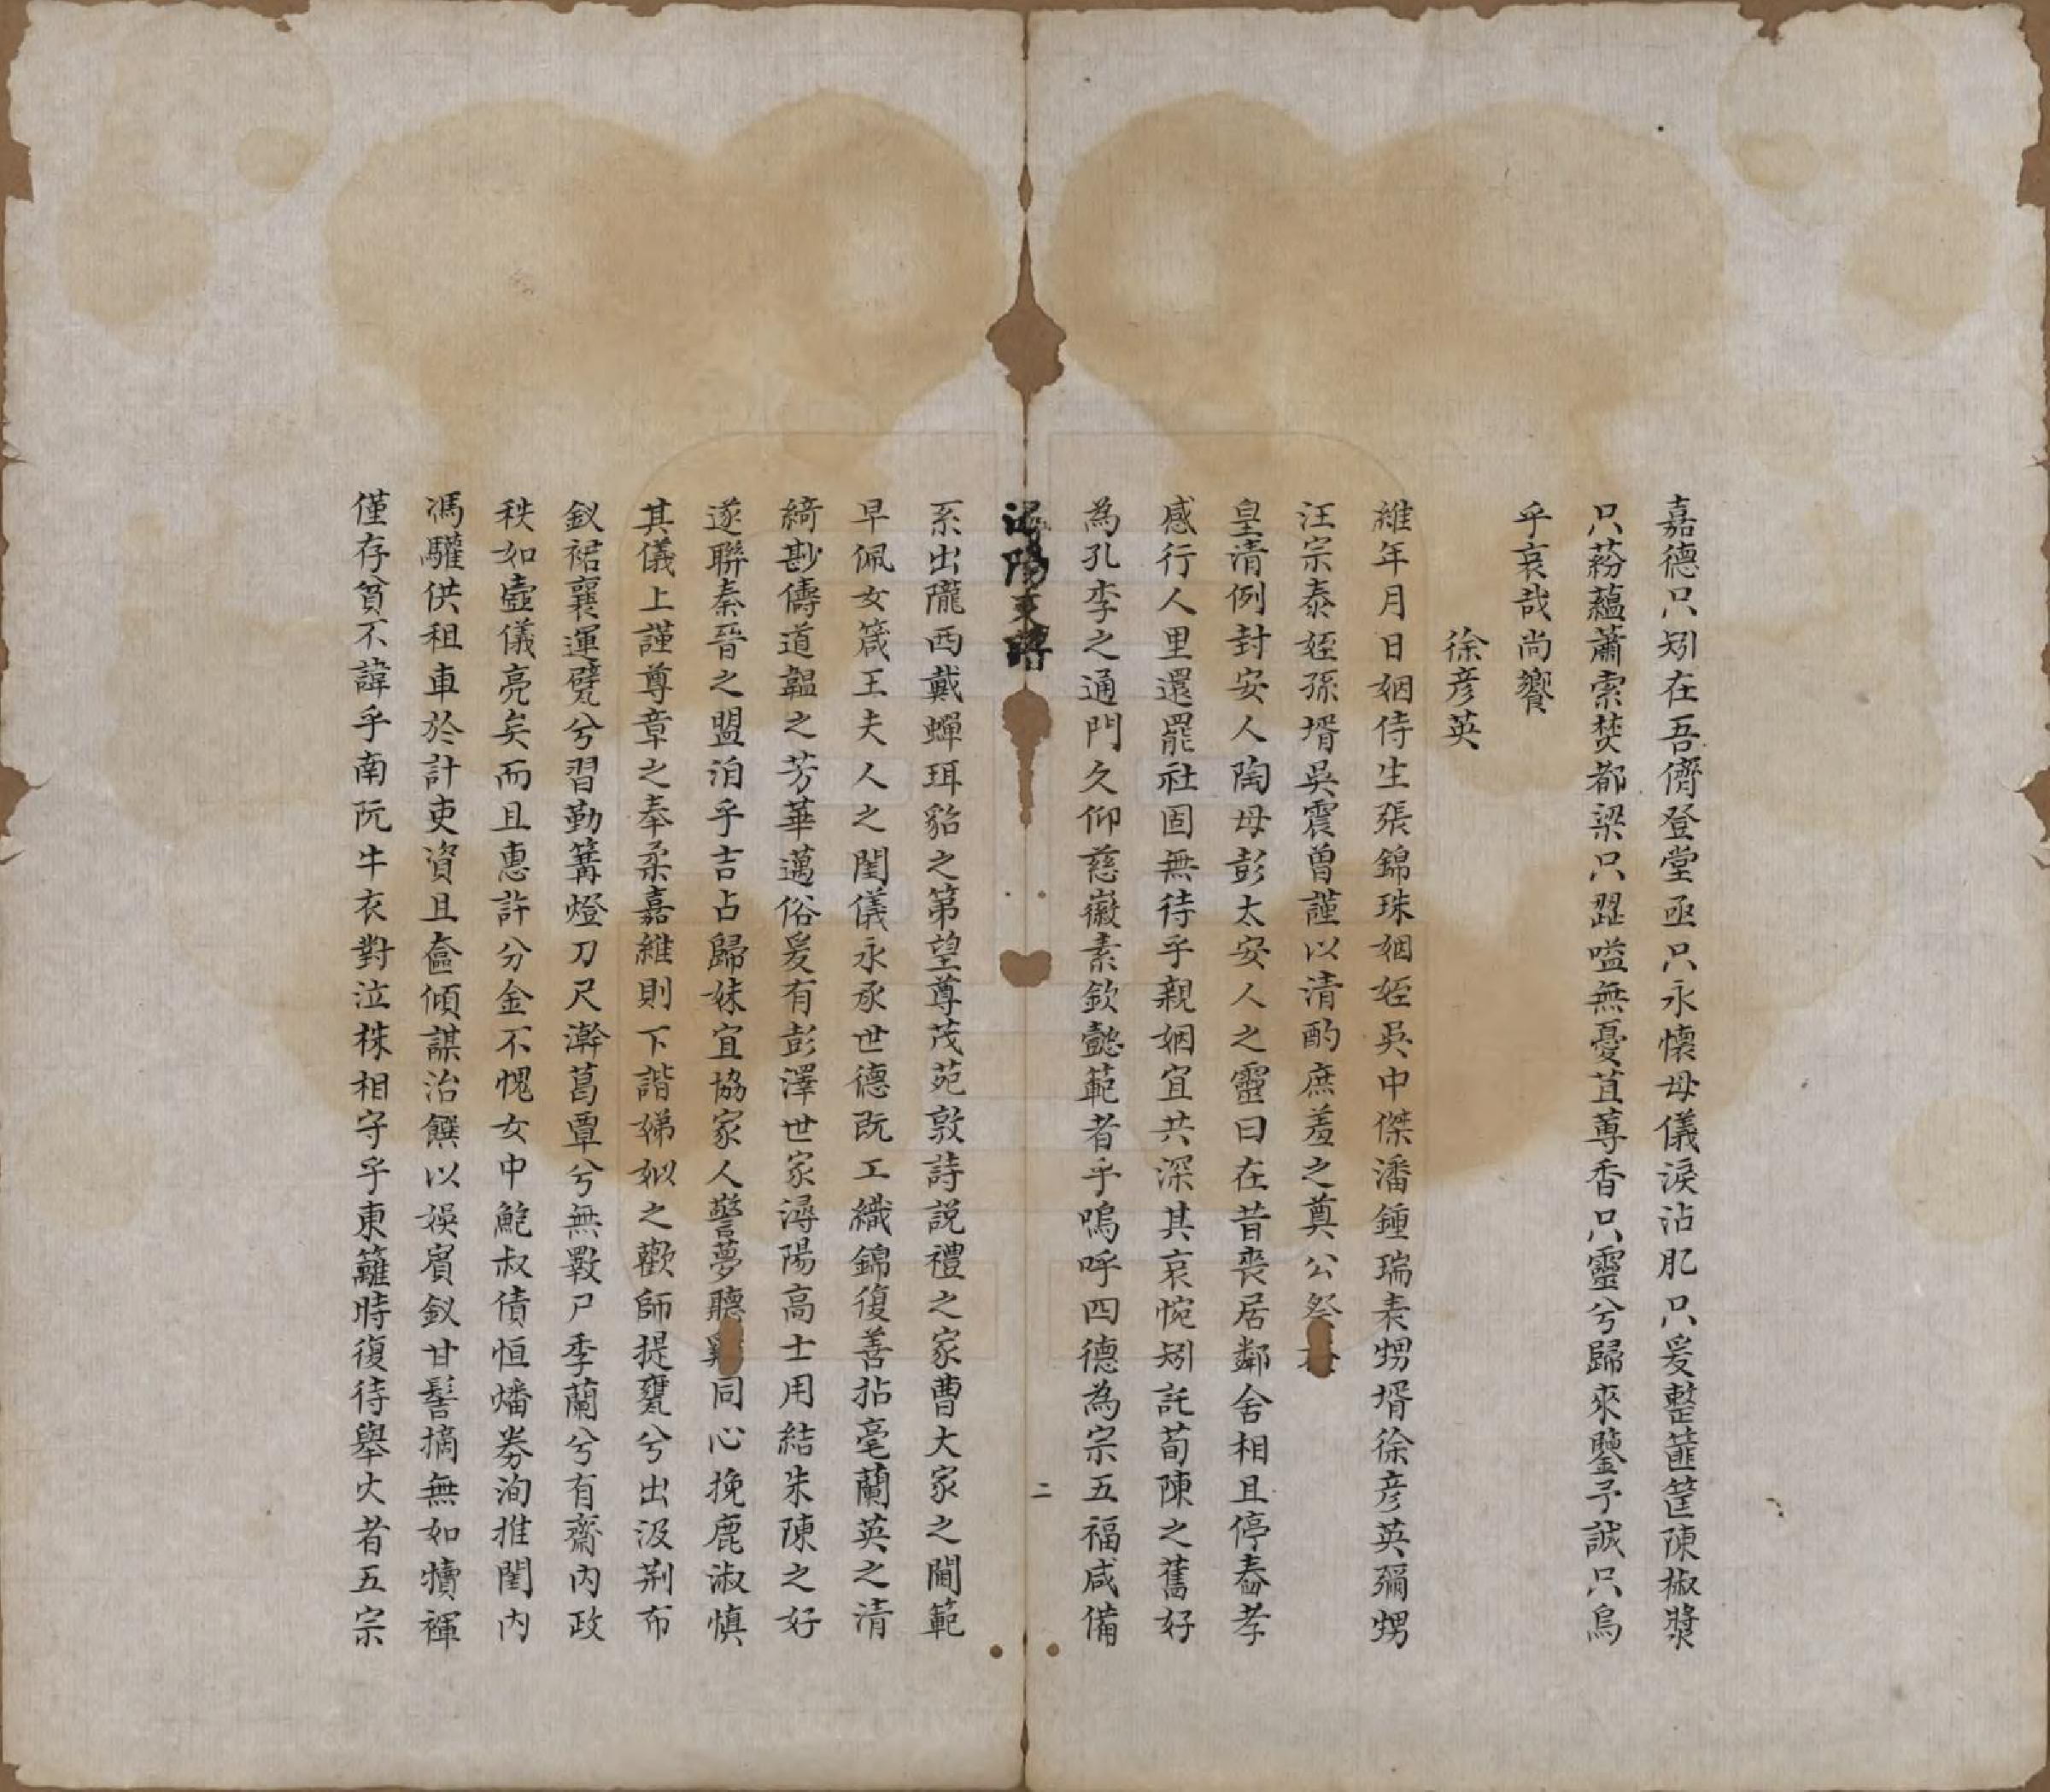 嘉德只矧在吾儕登堂亟只永懷母儀淚沾肊只爰整篚筐陳椒漿
只蒶蘊蕭索焚都梁只䍣嗌無憂苴蓴香只靈兮歸來鑒予誠只烏
乎哀哉尚饗
徐彦英
維年月日姻侍生張錦珠姻姪吳中傑潘鍾瑞表甥壻徐彦英彌甥
汪宗泰姪孫壻吳震曾謹以清酌庶羞之奠公祭
皇清例封安人陶母彭太安人之靈曰在昔喪居鄰舍相且停舂孝
感行人里還罷社固無待乎親姻宜共深其哀惋矧託荀陳之舊好
為孔李之通門久仰慈徽素欽懿範者乎嗚呼四德為宗五福咸備
潯陽
二
系出隴西戴蟬珥貂之第望尊茂苑敦詩説禮之家曹大家之閫範
早佩女箴王夫人之閨儀永承世德既工織錦復善拈毫蘭英之清
綺尠儔道韞之芳華邁俗爰有彭澤世家潯陽高士用結朱陳之好
遂聯秦晉之盟洎乎吉占歸妹宜協家人警夢聽雞同心挽鹿淑慎
其儀上謹尊章之奉柔嘉維則下諧娣姒之歡師提甕兮出汲荆布
釵裙襄運甓兮習勤篝燈刀尺澣葛覃兮無斁尸季蘭兮有齋内政
秩如壼儀亮矣而且惠許分金不愧女中鮑叔債恒燔券洵推閨内
馮驩供租車於計吏資且奩傾謀治饌以娛賓釵甘髻摘無如犢褌
僅存貧不諱乎南阮牛衣對泣株相守乎東籬時復待舉火者五宗